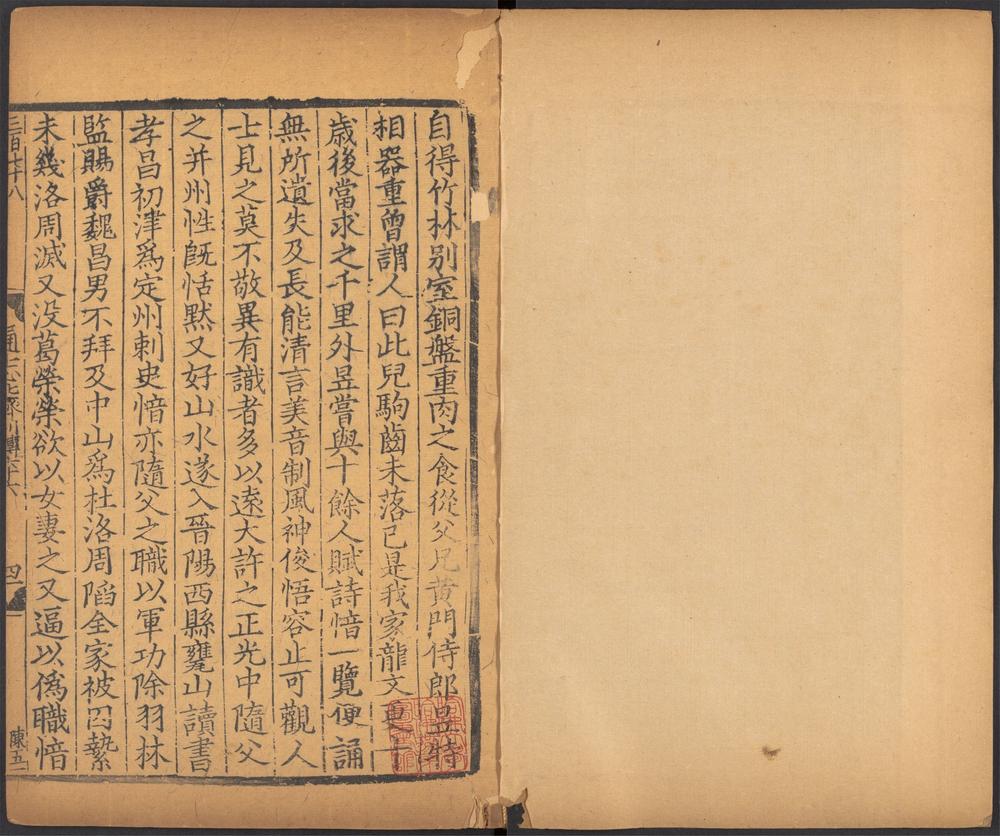 自得竹林别室銅盤重肉之食從父兄黄門侍郎昱特
相器重曾謂人曰此兒駒齒未落已是我家龍文更十
歳後當求之千里外昱嘗與十餘人賦詩愔一覽便誦
無所遺失及長能清言美音制風神俊悟容止可觀人
士見之莫不敬異有識者多以逺大許之正光中隨父
之并州性旣恬黙又好山水遂入晉陽西縣甕山讀書
孝昌初津爲定州刺史愔亦隨父之職以軍功除羽林
監賜爵魏昌男不拜及中山爲杜洛周䧟全家被囚縶
未幾洛周滅又没葛榮榮欲以女妻之又逼以僞職愔
三百七十八
通志列傳六十六
四
陳五